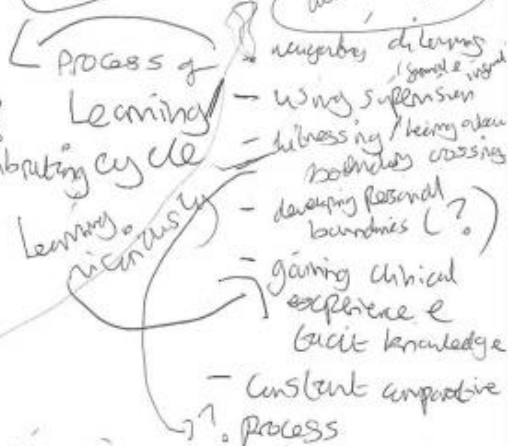 Process of
Learning
cycle
Learning
vicariously
- dilemmas
- using supervision
- witnessing / being a
boundary crossing
- developing personal
boundaries (?)
- gaining clinical
experience &
tacit knowledge
- constant comparative
??. process